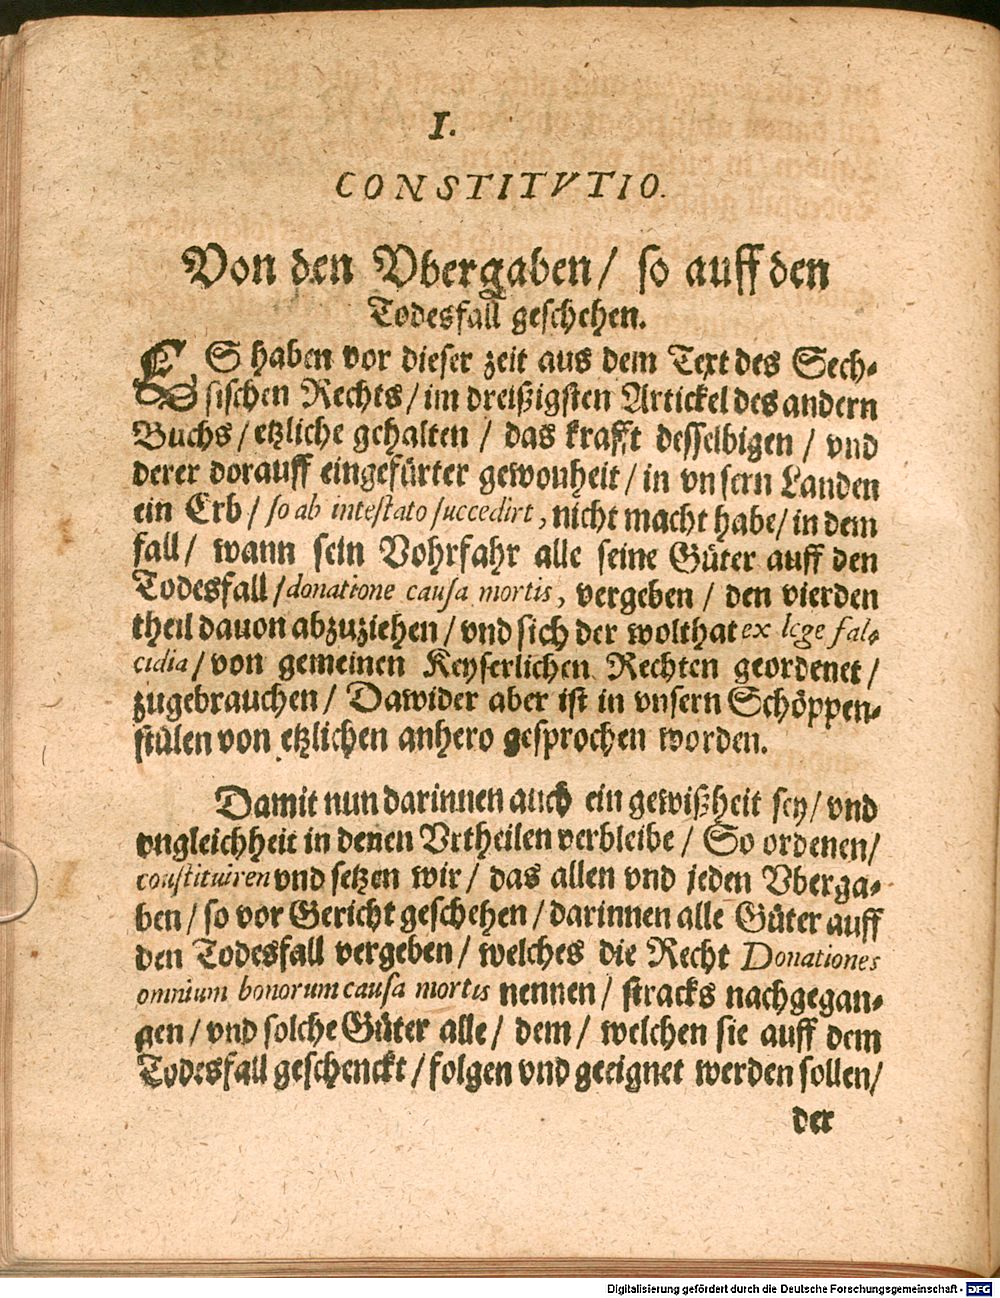 I.
CONSTITVTIO.
Von den Vbergaben / so auff den
Todesfall geschehen.
ES haben vor dieser zeit aus dem Text des Sech-
sischen Rechts / im dreißigsten Artickel des andern
Buchs / etzliche gehalten / das krafft desselbigen / vnd
derer dorauff eingefürter gewonheit / in vnsern Landen
ein Erb / so ab intestato succedirt, nicht macht habe / in dem
fall / wann sein Vohrfahr alle seine Güter auff den
Todesfall / donatione causa mortis, vergeben / den vierden
theil dauon abzuziehen / vnd sich der wolthat ex lege fal-
cidia / von gemeinen Keyserlichen Rechten geordenet /
zugebrauchen / Dawider aber ist in vnsern Schöppen-
stülen von etzlichen anhero gesprochen worden.
Damit nun darinnen auch ein gewißheit sey / vnd
vngleichheit in denen Vrtheilen verbleibe / So ordenen /
constituiren vnd setzen wir / das allen vnd jeden Vberga-
ben / so vor Gericht geschehen / darinnen alle Güter auff
den Todesfall vergeben / welches die Recht Donationes
omnium bonorum causa mortis nennen / stracks nachgegan-
gen / vnd solche Güter alle / dem / welchen sie auff dem
Todesfall geschenckt / folgen vnd geeignet werden sollen /
der
Digitalisierung gefördert durch die Deutsche Forschungsgemeinschaft - DFG